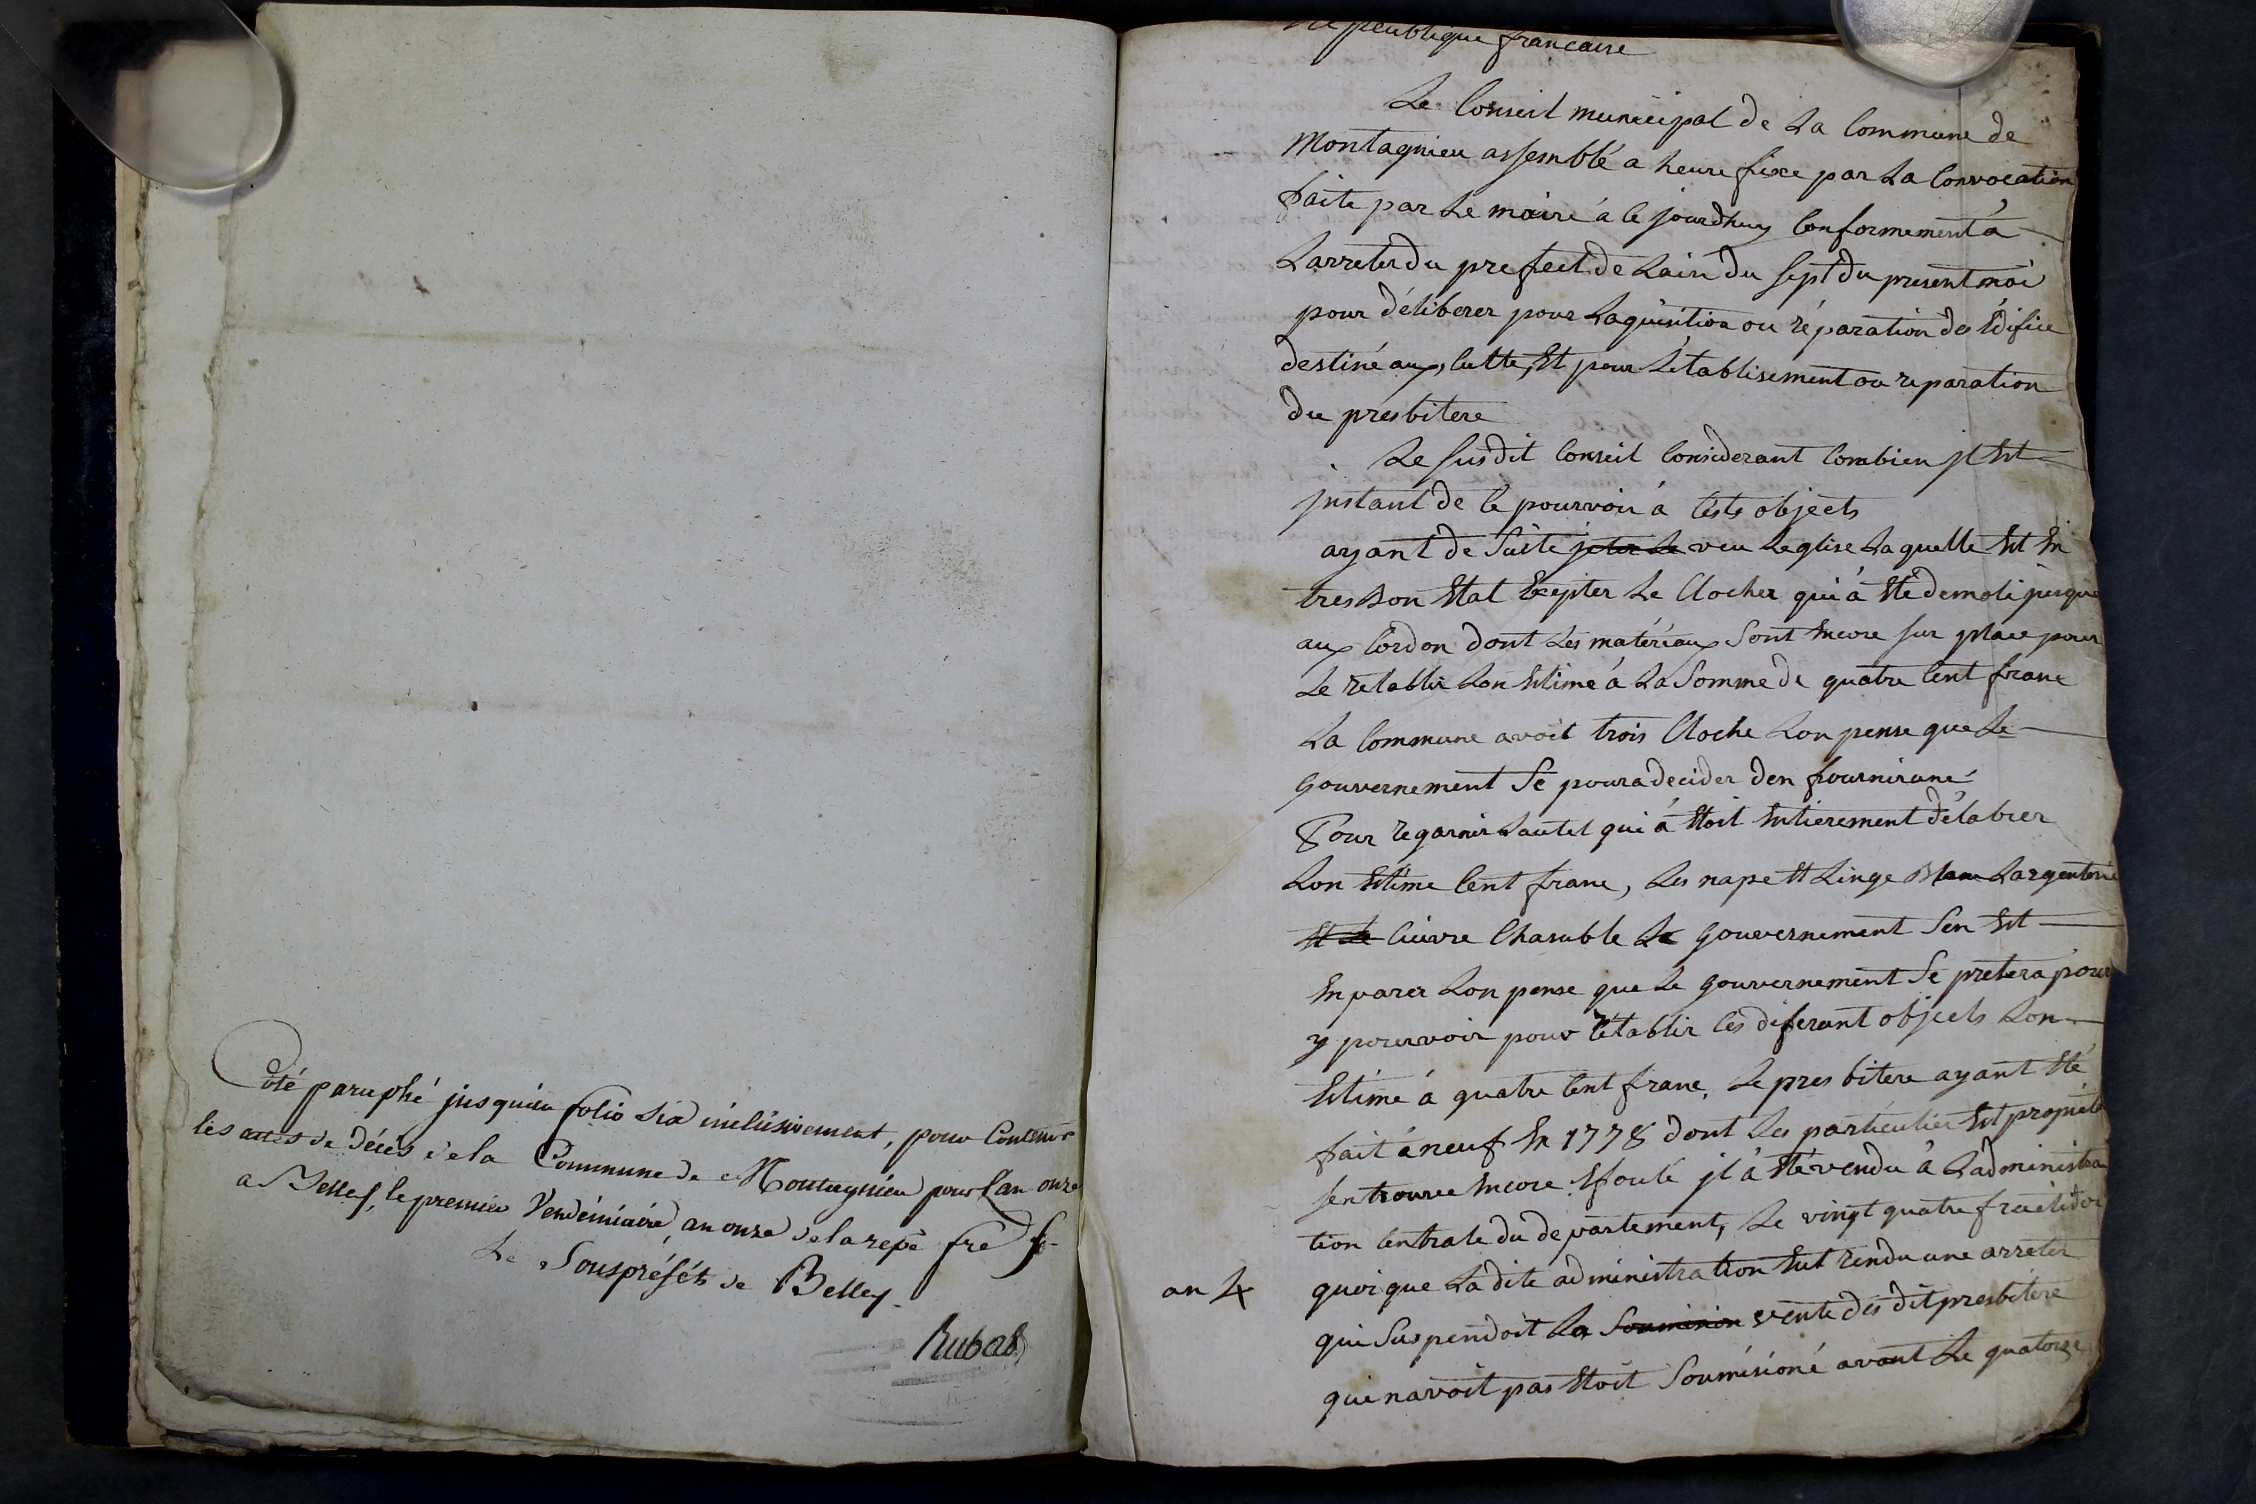 Coté paraphé jusquieu folio six inclusivement, pour Contenir
les actes de décès de la Commune de Montagnieu pour l'an onze
a Belley, le premier Vendémiaire, an onze de la repe fre
Le Souspréfét de Belley
Rubat
Republique francaise
Le Conseil municipal de La Commune de
Montagnieu assemblé a heure fixe par La Convocation
faite par Le maire á Ce jourdhuy Conformement á
Larreter du prefect de Lain du sept du present moi
pour déliberer pour Laquisition ou réparation des Edifice
destiné aux Cutte, Et pour Létablisement ou reparation
du presbitere
Le susdit Conseil Considerant Combien jl Est
jnstant de Ce pourvoir á Cests objects
ayant de Suite jeter Le veu Leglise Laquelle Est En
tres Bon Etat Exepter Le Clocher qui á Eté demoli jusque
aux Cordon dont Les matéreaux Sont Encore sur place pour
Le retablir Lon Estime á La Somme de quatre Cent franc
La Commune avoit trois Cloche Lon pense que Le
gouvernement Se poura decider den fournir une
Pour regarnir Lautel qui á Etoit Entierement délabrer
Lon Estime Cent franc, Les nape Et Linge Blanc Largenterie
Et Le Cuivre Chasuble Le gouvernement Sen Est
Enparer Lon pense que Le gouvernement Se pretera pour
y pourvoir pour rétablir Ces diferant objects Lon
Estime á quatre Cent franc, Le presbitere ayant Eté
fait á neuf En 1778 dont Les particulier Est
sen trouve Encore jl á Eté vendu á Ladministra
tion Centrale du departement, Le vingt quatre
an 4 quoique La dite administration Eut rendu une arreter
qui Suspendoit La Soumision vente des dit presbitere
qui navoit pas Etoit Soumisioné avant Le quatorze